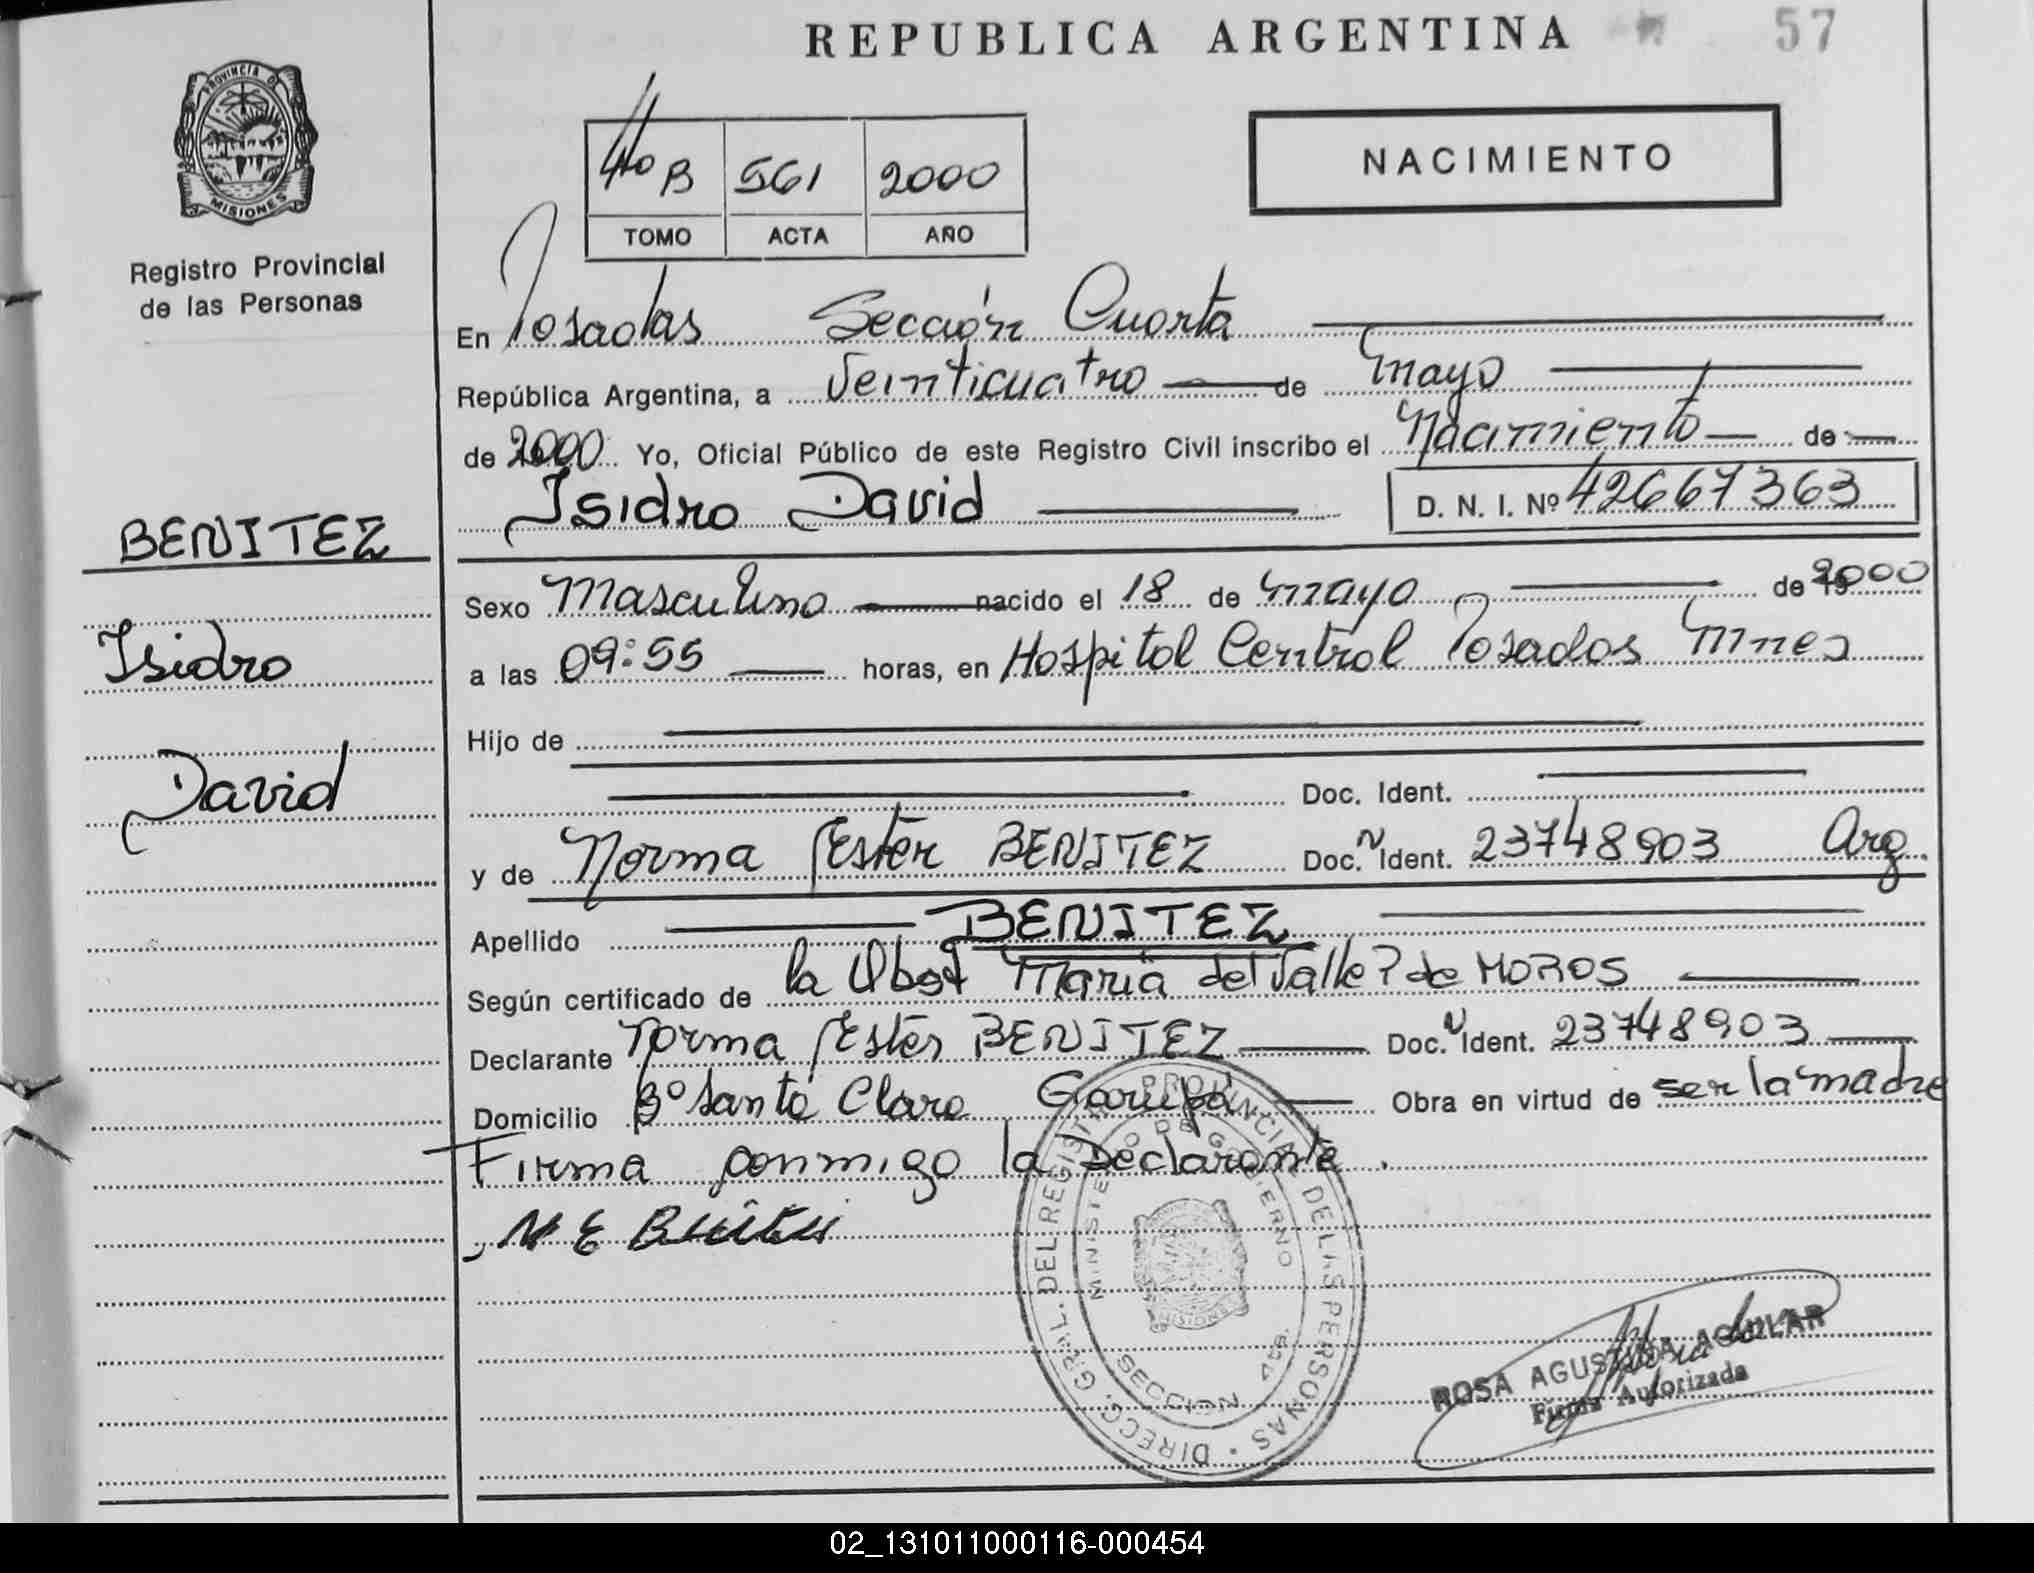 REPUBLICA ARGENTINA 57
PROVINCIA D
MISIONES
Registro Provincial
de las Personas
4to B 561 2000
TOMO ACTA AÑO
NACIMIENTO
En Posadas Sección Cuarta
República Argentina, a Veinticuatro de mayo
de 2000 Yo, Oficial Público de este Registro Civil inscribo el Nacimiento de
Isidro David D. N. I. Nº 42667363
BENITEZ
Isidro
David
Sexo Masculino nacido el 18 de mayo de 2000
a las 09:55 horas, en Hospital Central Posadas Mnes
Hijo de
Doc. Ident.
y de Norma Ester BENITEZ Doc. N Ident. 23748903 Arg
Apellido BENITEZ
Según certificado de la Obst Maria del Valle P de MOROS
Declarante Norma Ester BENITEZ Doc. N Ident. 23748903
Domicilio Bº Santa Clara Garupá Obra en virtud de ser la madre
Firma conmigo la Declarante.
N E Benitez
DIRECC. GRAL. DEL REGISTRO PROVINCIAL DE LAS PERSONAS
MINISTERIO DE GOBIERNO
MISIONES
SECCION
ROSA AGUSTINA AGUILAR
Firma Autorizada
02_131011000116-000454